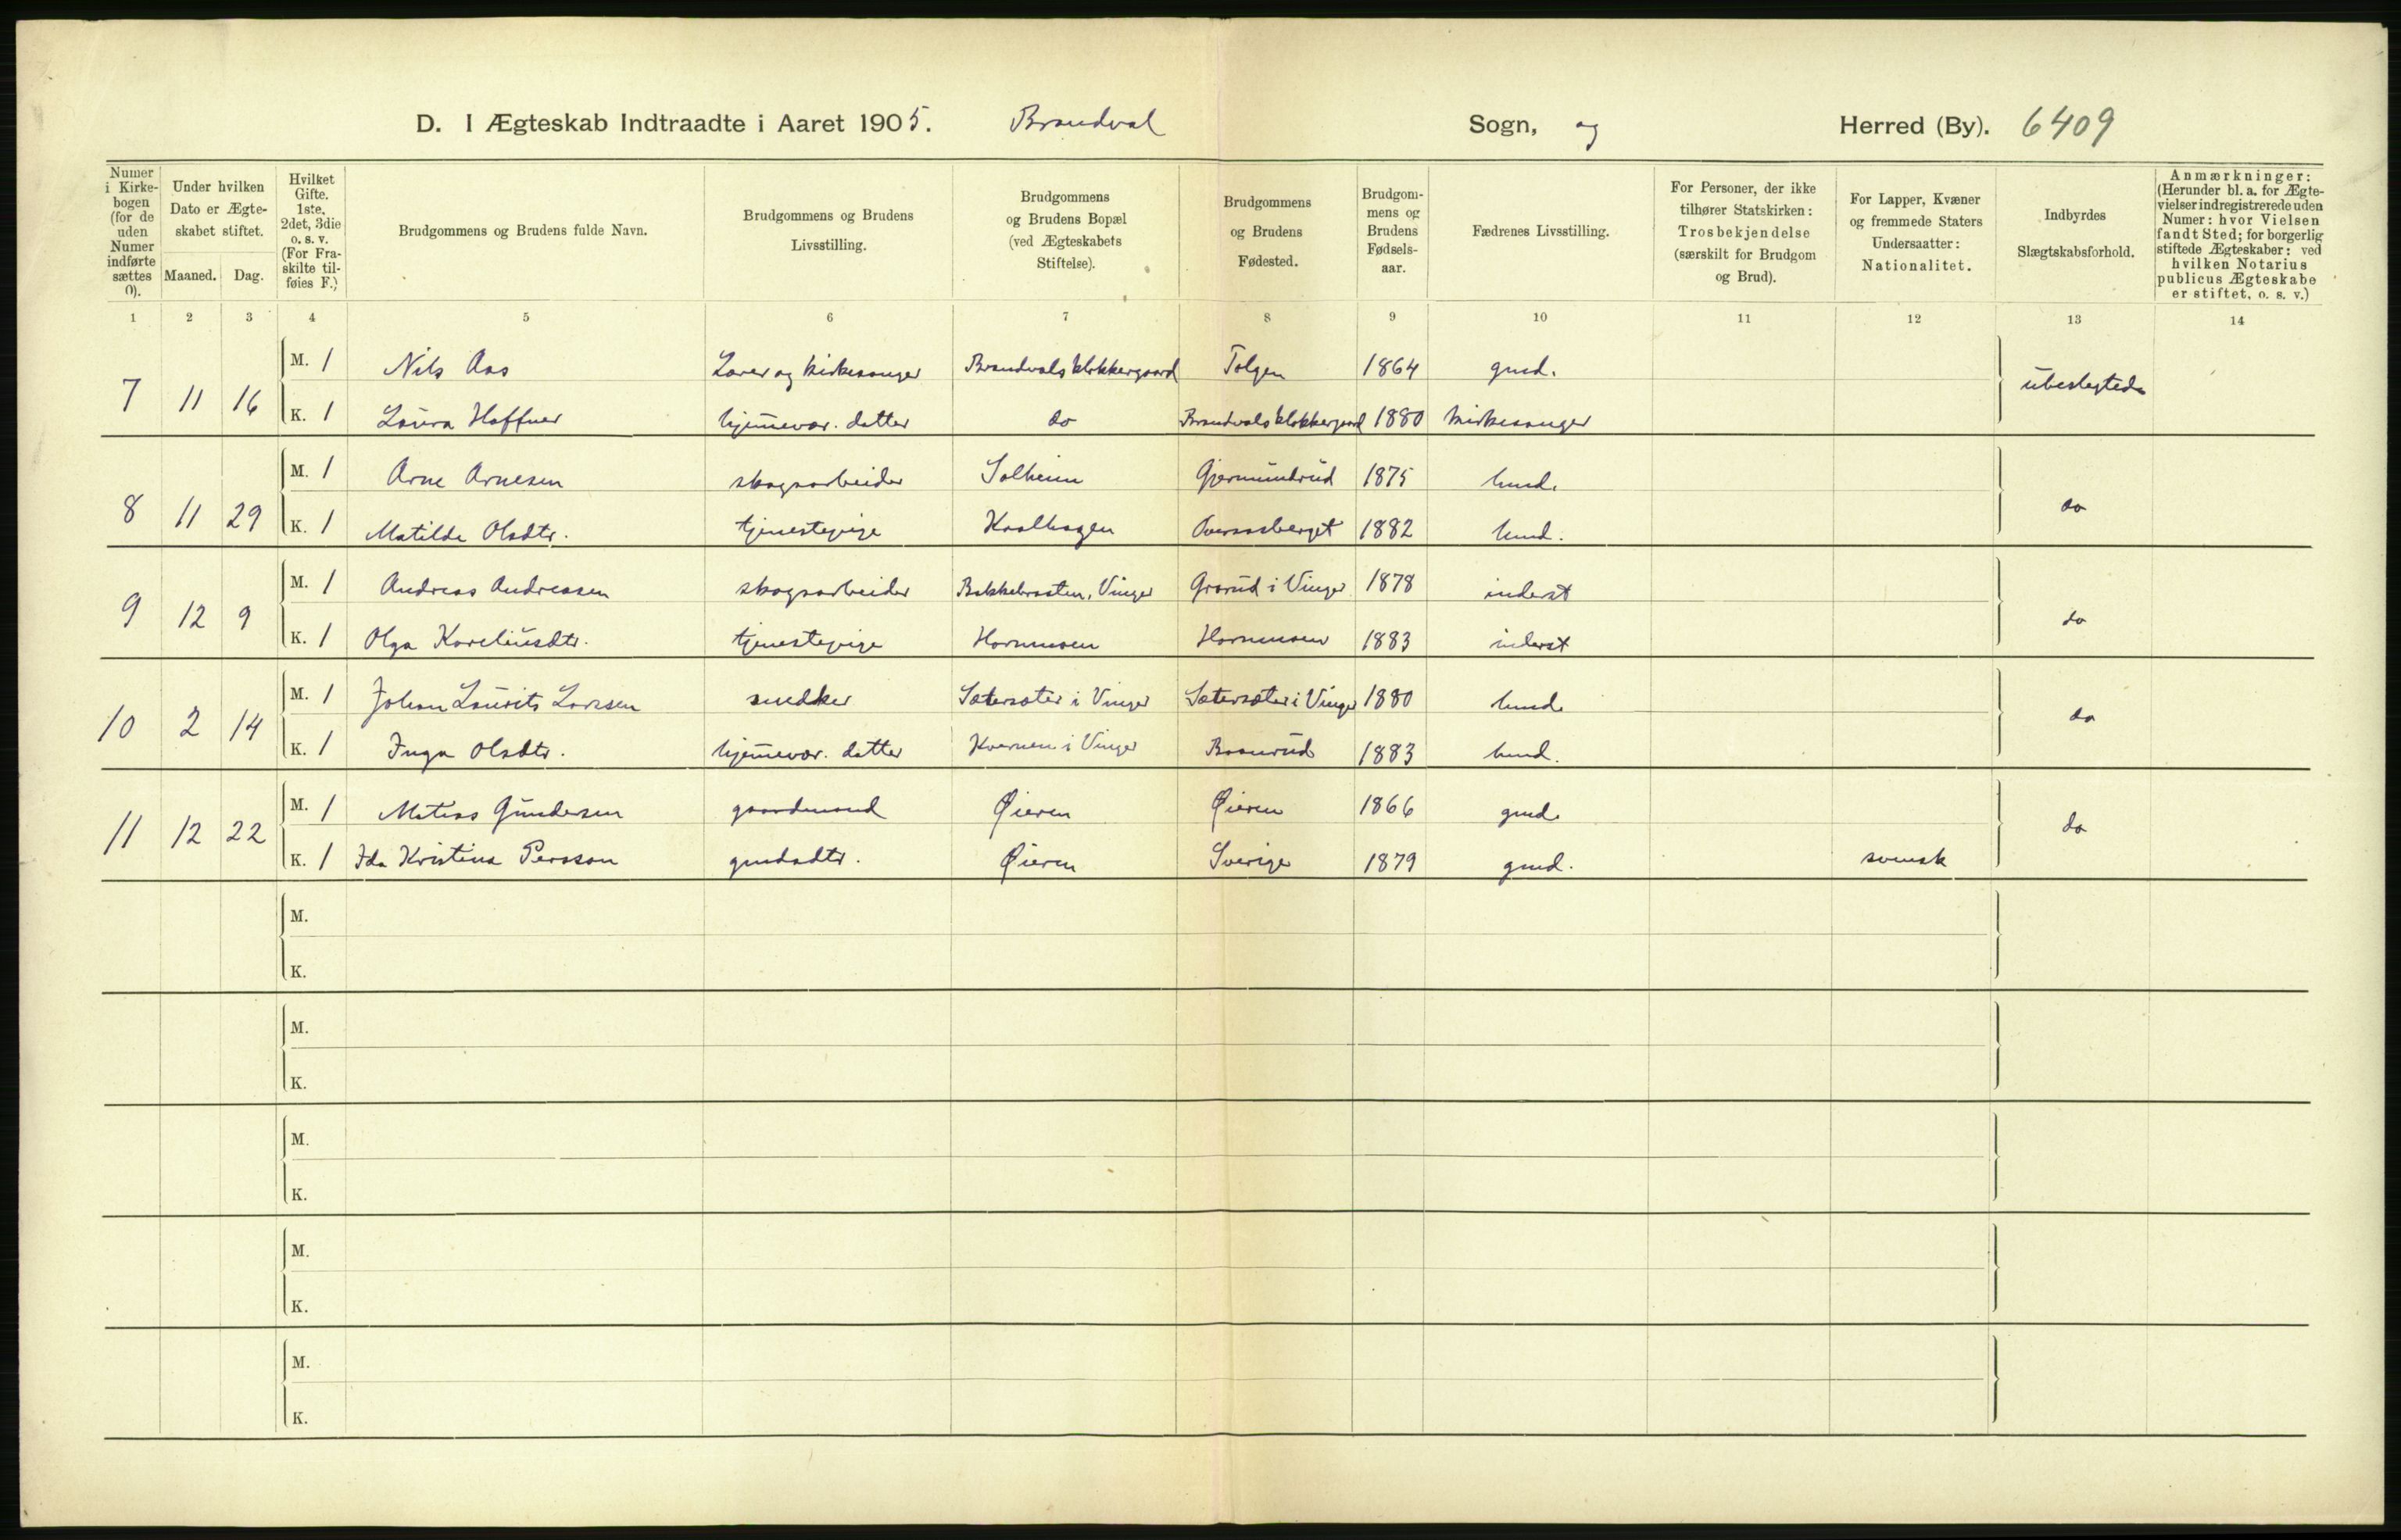 D. I Ægteskab Indtraadte i Aaret 1905. Brandval Sogn, og Herred (By). 6409
Numer i Kirkebogen (for de uden Numer indførte sættes 0).
Under hvilken Dato er Ægteskabet stiftet.
Maaned. Dag.
Hvilket Gifte. 1ste, 2det, 3die o. s. v. (For Fraskilte tilføies F.)
Brudgommens og Brudens fulde Navn.
Brudgommens og Brudens Livsstilling.
Brudgommens og Brudens Bopæl (ved Ægteskabets Stiftelse).
Brudgommens og Brudens Fødested.
Brudgommens og Brudens Fødselsaar.
Fædrenes Livsstilling.
For Personer, der ikke tilhører Statskirken: Trosbekjendelse (særskilt for Brudgom og Brud).
For Lapper, Kvæner og fremmede Staters Undersaatter: Nationalitet.
Indbyrdes Slægtskabsforhold.
Anmærkninger: (Herunder bl. a. for Ægtevielser indregistrerede uden Numer: hvor Vielsen fandt Sted; for borgerlig stiftede Ægteskaber: ved hvilken Notarius publicus Ægteskabe er stiftet, o. s. v.)
1 2 3 4 5 6 7 8 9 10 11 12 13 14
7 11 16 M. 1 Nils Aas Lærer og kirkesanger Brandvals klokkergaard Tolgen 1864 gmd. ubeslegtede
K. 1 Laura Haffner hjemmevær. datter do Brandvals klokkergaard 1880 kirkesanger
8 11 29 M. 1 Arne Arnesen skogsarbeider Solheim Gjermundrud 1875 husmd. do
K. 1 Matilde Olsdtr. tjenestepige Kaalhagen Overaasberget 1882 husmd.
9 12 9 M. 1 Andreas Andreassen skogsarbeider Bakkebraaten, Vinger Grarud i Vinger 1878 inderst do
K. 1 Olga Kareliusdtr. tjenestepige Hornmoen Hornmoen 1883 inderst
10 2 14 M. 1 Johan Laurits Larssen snedker Sætersæter i Vinger Sætersæter i Vinger 1880 husmd. do
K. 1 Inga Olsdtr. hjemmevær. datter Kvernen i Vinger 1883 husmd.
11 12 22 M. 1 Matias Gundersen gaardmand Øieren Øieren 1866 gmd. do
K. 1 Ida Kristina Persson gmdsdtr. Øieren Sverige 1879 gmd. svensk
M.
K.
M.
K.
M.
K.
M.
K.
M.
K.